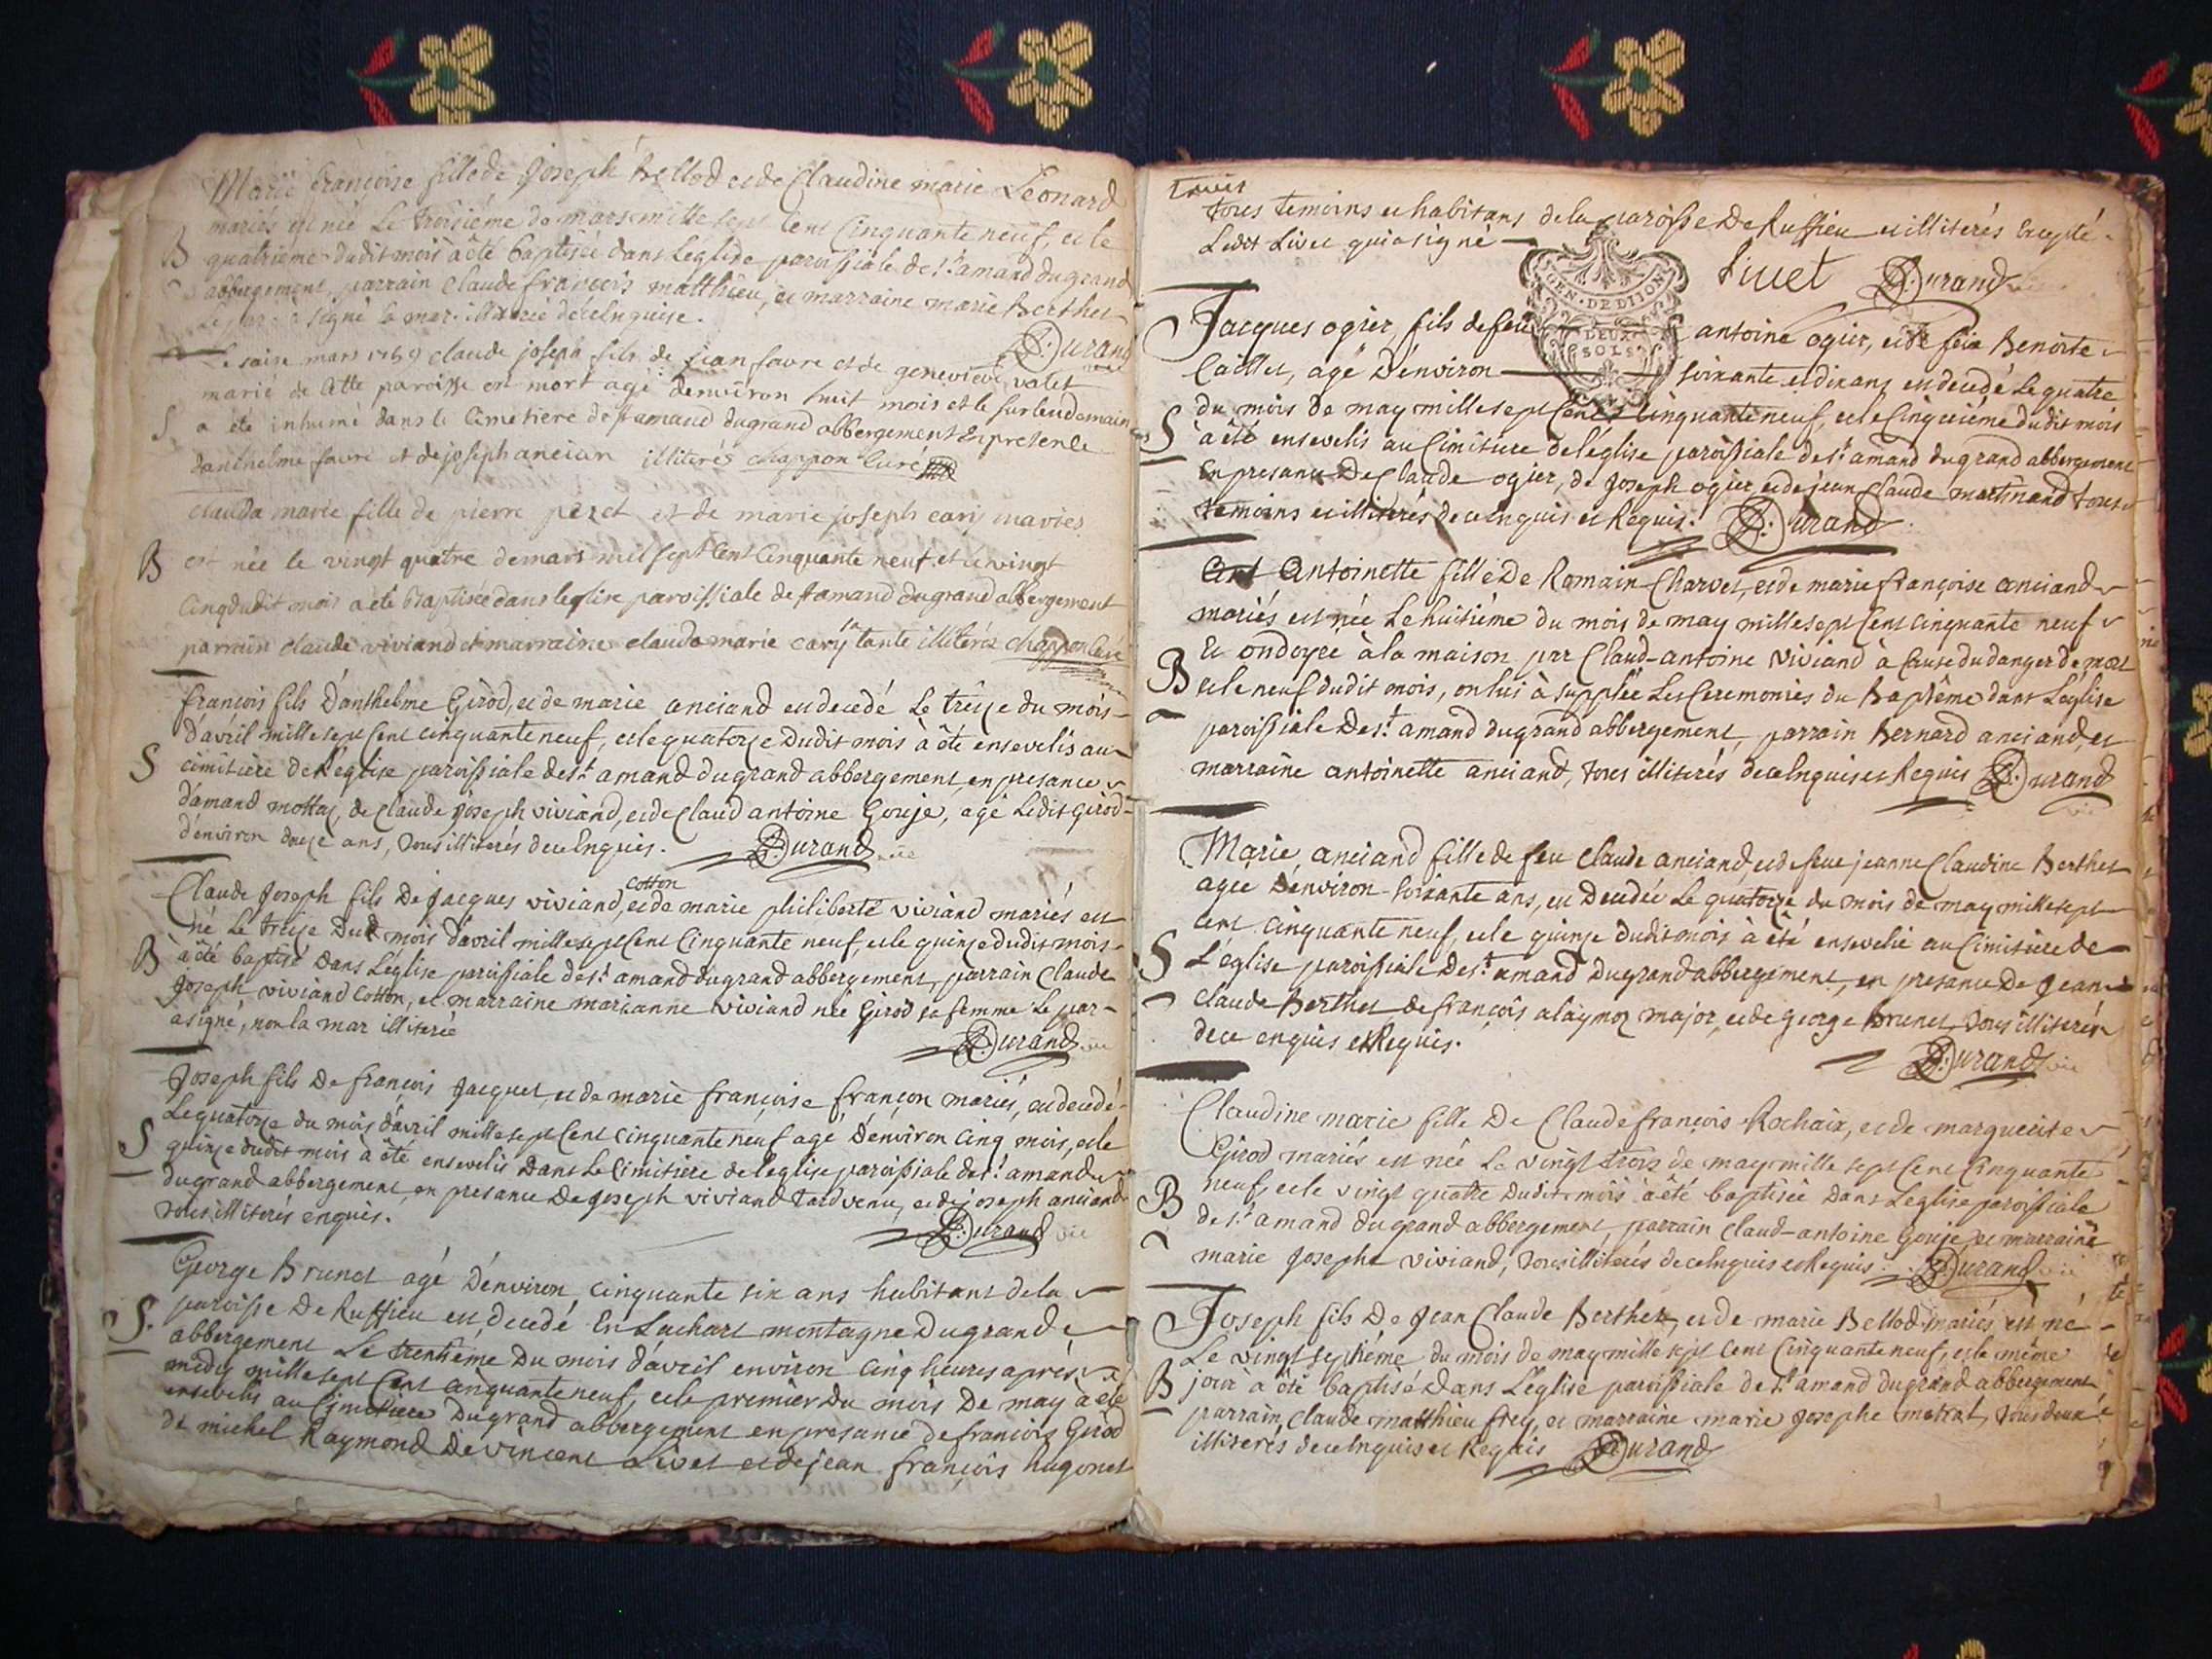 Marie francoise fille de Joseph Bellod et de Claudine marie Leonard
mariés est née Le troisiéme de mars mille sept Cent Cinquante neuf, et le
B quatriéme dudit mois à été baptisée dans L'eglise paroissiale de st amand du grand
abbergement, parrain Claude francois matthieu, et marraine marie Berthet
signé la mar. illiterée de ce Enquise.
Durand
Le saise mars 1759 claude joseph fils de jean favre et de genevieve valet
marié de Cette paroisse est mort agé denviron huit mois et le surlendemain
S a été inhumé dans le Cimetiere de st amand du grand abbergement En presence
danthelme favre et de joseph ancian illiterés chappon Curé
Clauda marie fille de pierre peret et de marie joseph cary mariés
B est née le vingt quatre de mars mil sept Cent Cinquante neuf et le vingt
Cinq dudit mois a été Baptisée dans leglise paroissiale de st amand du grand abbergement
parrain claude viviand et marraine clauda marie cary sa tante illiterés chappon Curé
francois fils D'anthelme Girod, et de marie anciand est decedé Le treize du mois
d'avril mille sept Cent cinquante neuf, et le quatorze Dudit mois à été ensevelis au
S cimitiere de l'église paroissiale de st amand du grand abbergement, en presance
d'amand mottaz, de Claude Joseph viviand, et de Claud antoine Gouje, agé Ledit Girod
d'environ douze ans, tous illiterés de ce Enquis. Durand vic
Claude Joseph fils De Jacques viviand cotton, et de marie philiberte viviand mariés est
né Le treize Du mois d'avril mille sept Cent Cinquante neuf, et le quinze dudit mois
B à été baptisé Dans L'église paroissiale de st amand du grand abbergement, parrain Claude
Joseph viviand Cotton, et marraine marianne viviand née Girod sa femme Le par-
a signé, non la mar illiterée
Durand vic
Joseph fils De françois Jacquet, et de marie françoise françon mariés, est decedé
Le quatorze du mois d'avril mille sept Cent cinquante neuf agé D'environ Cinq mois, et le
S quinze dudit mois à été ensevelis Dans Le Cimitiere de l'eglise paroissiale de st amand
du grand abbergement, en presance De Joseph viviand tard venu, et de joseph anciand
tous illiterés enquis. Durand vic
George Brunet agé D'environ cinquante six ans habitant de la
S. paroisse De Ruffieu est decedé En Luchart montagne Du grand
abbergement Le trentiéme Du mois d'avril environ Cinq heures aprés
midy mille sept Cent cinquante neuf, et le premier Du mois De may à été
ensevelis au Cimitiere Du grand abbergement en presance de francois Girod
de michel Raymond De vincent Livet et de jean françois hugonet
tous temoins et habitans de la paroisse De Ruffieu et illiterés Excepté
Ledit Livet qui a signé
livet Durand
GEN. DE DIJON
DEUX
SOLS
Jacques ogier, fils de feu antoine ogier, et de feüe Benoite
Caillet, agé D'environ soixante et dix ans est decedé Le quatre
du mois de may mille sept Cent Cinquante neuf, et le Cinquiéme dudit mois
S à été ensevelis au Cimitiere de l'église paroissiale de st amand du grand abbergement
En presance De Claude ogier, de Joseph ogier et de jean Claude martinand tous
temoins et illiterés de ce Enquis et Requis. Durand
Antoinette fille De Romain Charvet, et de marie françoise anciand
mariés est née Le huitiéme du mois de may mille sept Cent cinquante neuf
Et ondoyée à la maison par Claud-antoine Viviand à Cause du danger de mort
B et le neuf dudit mois, on lui à supplée Les Ceremonies du Baptême dans L'église
paroissiale De st amand du grand abbergement, parrain Bernard anciand, et
marraine antoinette anciand, tous illiterés de ce Enquis et Requis Durand
Marie anciand fille de feu Claude anciand, et de feue jeanne Claudine Berthet
agée D'environ soixante ans, est Decedée Le quatorze du mois de may mille sept
cent cinquante neuf, et le quinze dudit mois à été ensevelie au Cimitiere de
S L'église paroissiale De st amand Du grand abbergement, en presance De Jean
Claude Berthet de françois alaymoz major, et de george brunet, tous illiterés
de ce enquis et Requis.
Durand vic
Claudine marie fille De Claude françois Rochaix, et de marguerite
Girod mariés est née Le vingt trois de may mille sept Cent Cinquante
B neuf, et le vingt quatre Dudit mois à été baptisée Dans L'eglise paroissiale
de st amand du grand abbergement, parrain Claud-antoine Gouje, et marraine
marie Josephe viviand, tous illiterés de ce Enquis et Requis. Durand vic
Joseph fils De Jean Claude Berthet, et de marie Bellod mariés est né
Le vingt septiéme du mois de may mille sept Cent Cinquante neuf, et le même
B jour à été baptisé Dans L'église paroissiale de st amand du grand abbergement,
parrain Claude matthieu frey, et marraine marie Josephe mottat, tous deux
illiterés de ce Enquis et Requis Durand